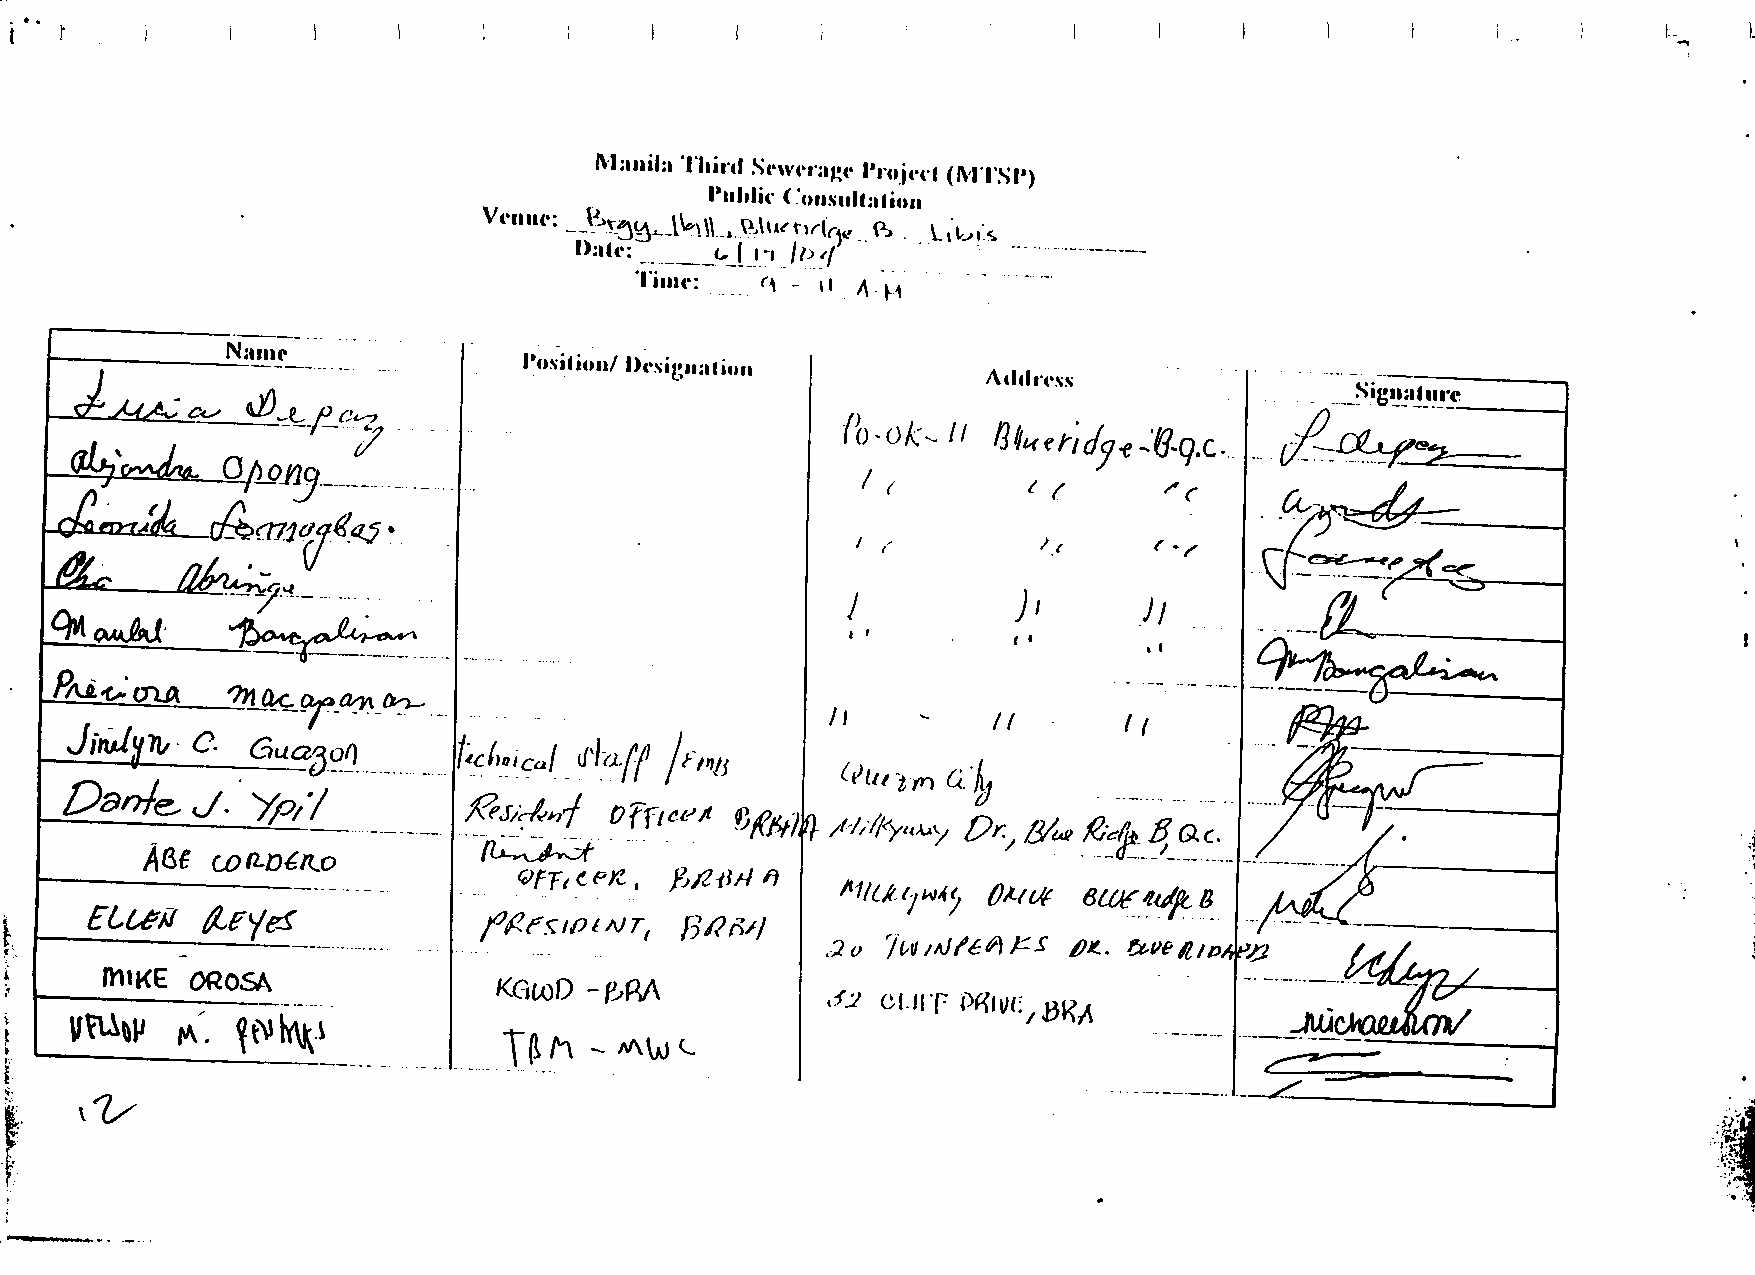 Manila Third Sewerage Project (MTSP)
Public Consultation
Venue: Brgy. Hall, Blueridge B. Libis
Date: 6/17/04
Time: 9 - 11 A.M
Name Position/ Designation Address Signature
Lucia Depaz Po-ok-11 Blueridge-B-Q.C.
Alejandra Opong " " "
Leonida " " "
Abringe " " "
Bangalisan " " "
Preciora Macapanas " " "
Jinelyn C. Guazon Technical Staff /EMB Quezon City
Dante J. Ypil Resident Officer BRBHA Milkyway Dr., Blue Ridge B, Q.C.
ABE CORDERO OFFICER, BRBHA MILKYWAY DRIVE BLUE Ridge B
ELLEN REYES PRESIDENT, BRBH 20 TWINPEAKS DR. BLUE RIDGE B
MIKE OROSA KGWD - BRA 52 CLIFF DRIVE, BRA
NELSON M. TBM - MWC
12